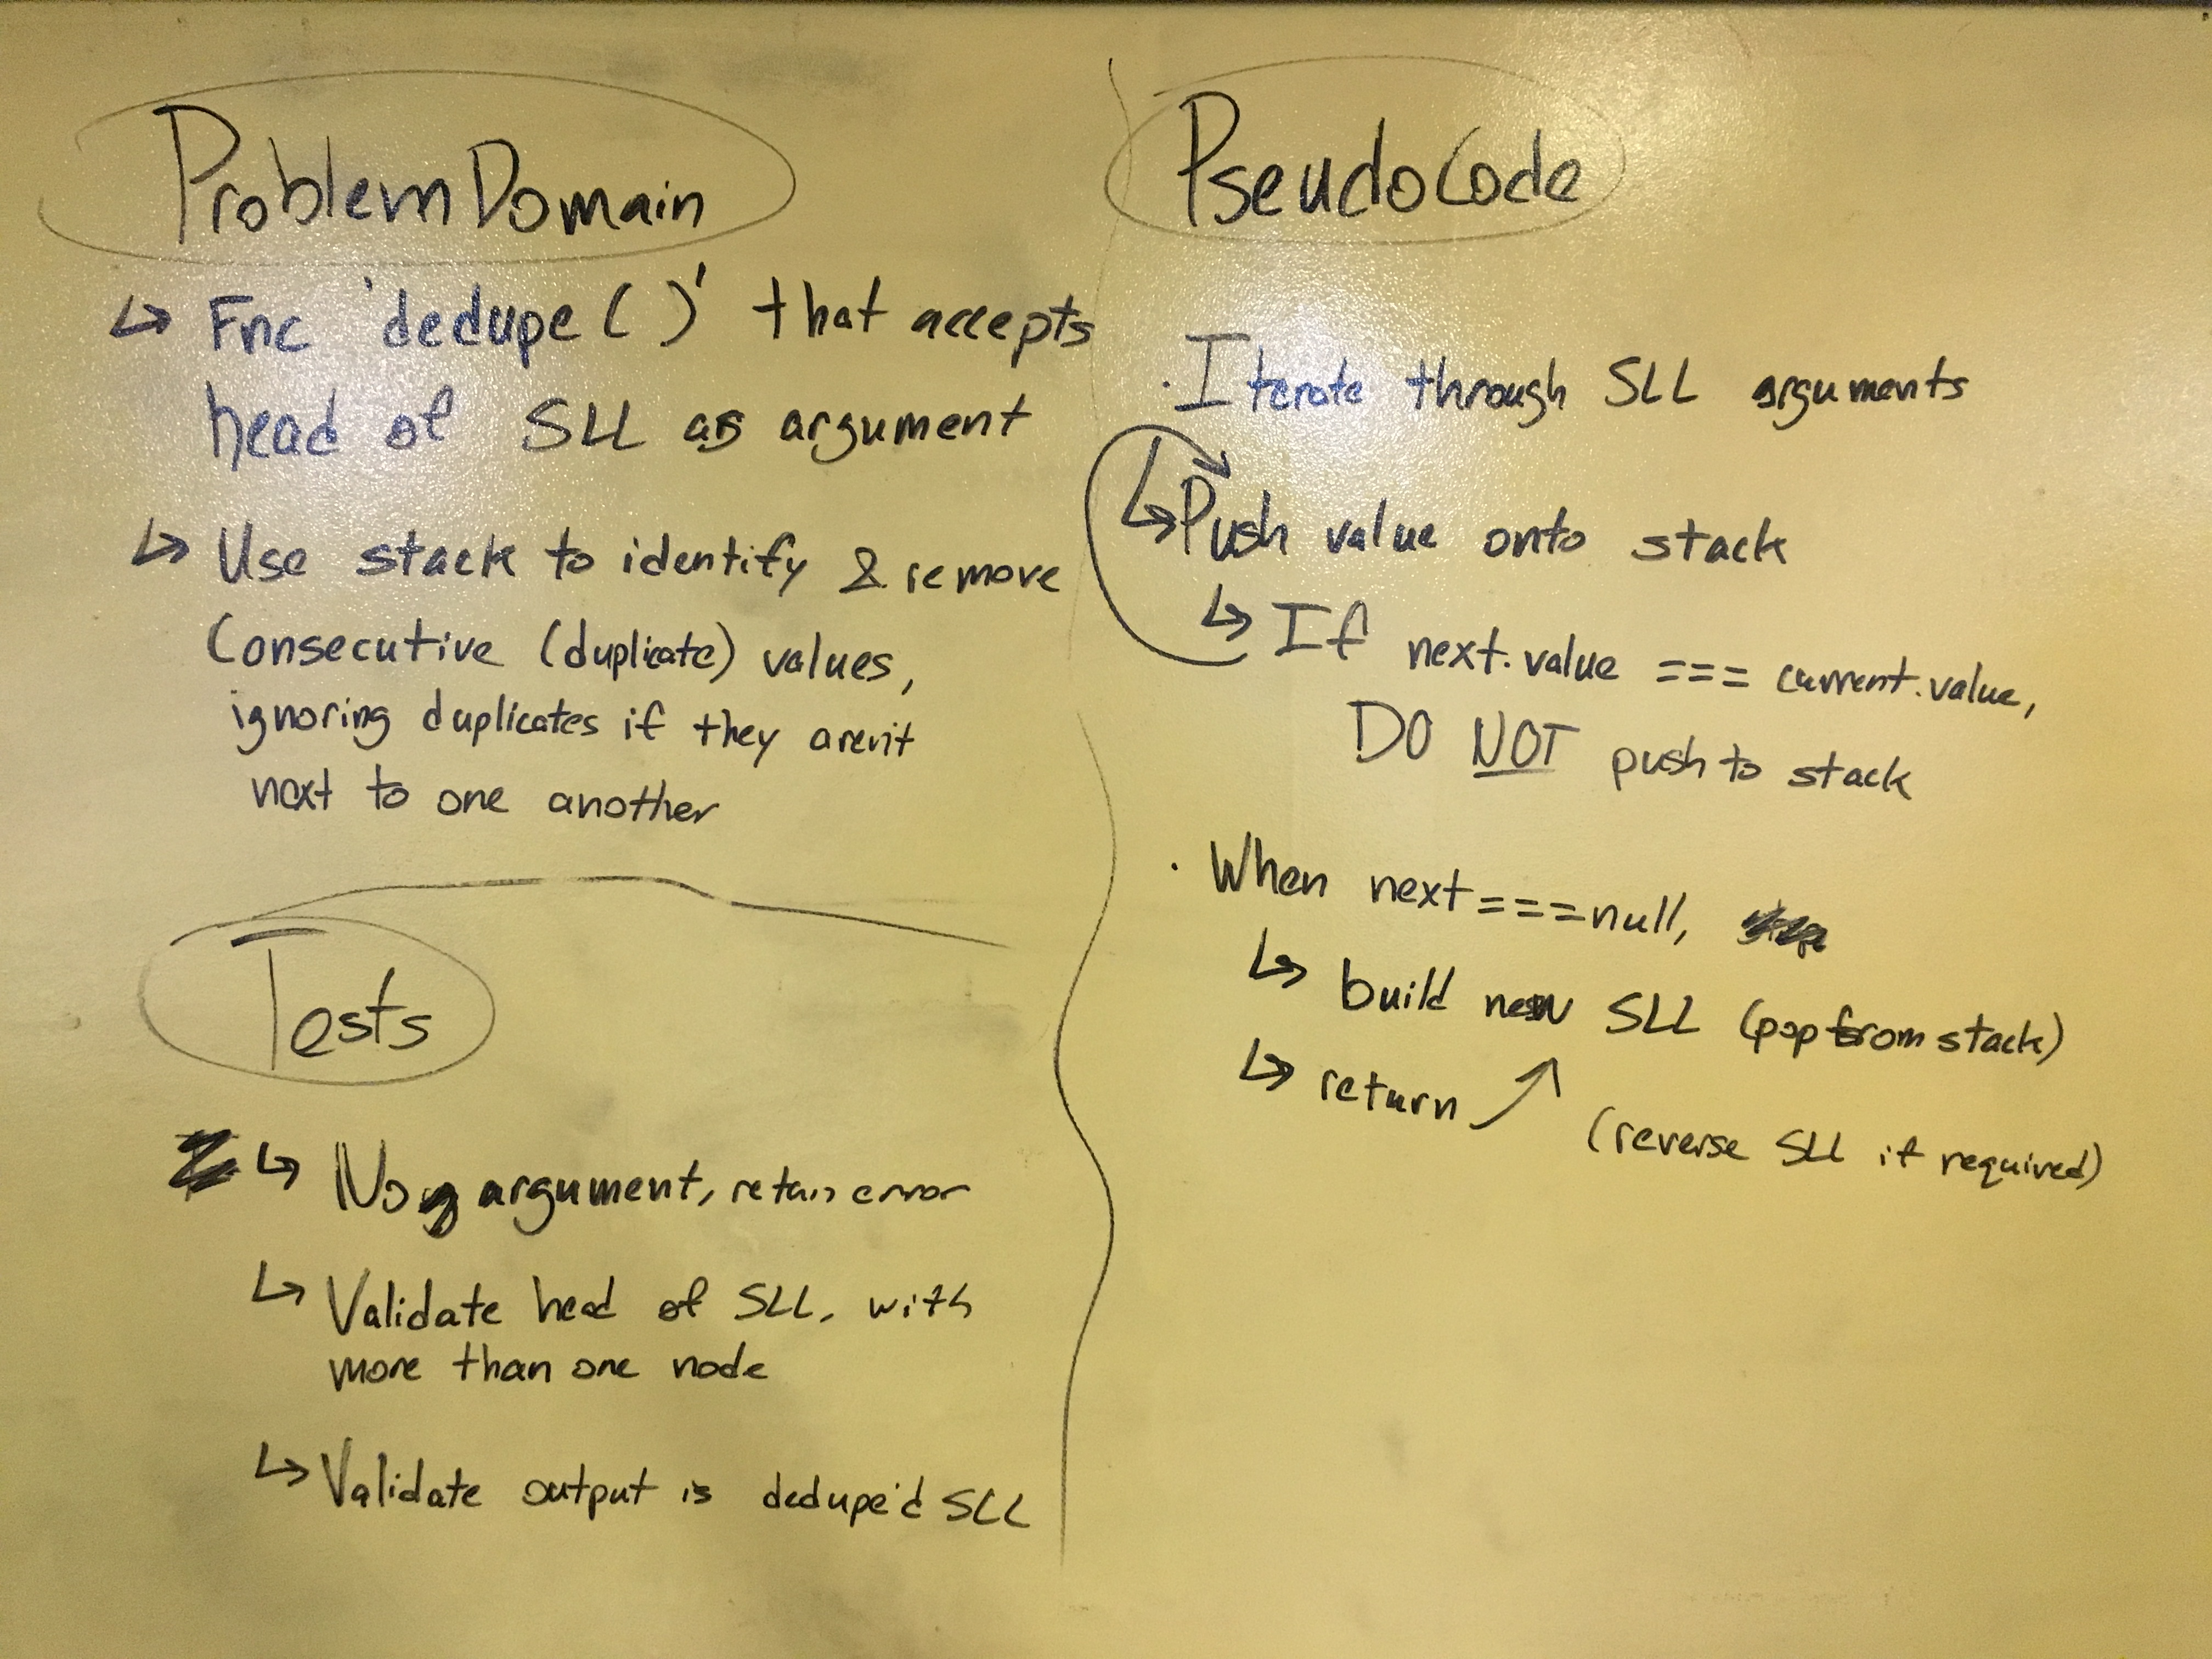 Problem Domain
↳ Fnc 'dedupe()' that accepts
head of SLL as argument
↳ Use stack to identify & remove
Consecutive (duplicate) values,
ignoring duplicates if they aren't
next to one another
Tests
↳ No argument, retain error
↳ Validate head of SLL, with
more than one node
↳ Validate output is dedupe'd SLL
PseudoCode
· Iterate through SLL arguments
↳ Push value onto stack
↳ If next.value === current.value,
DO NOT push to stack
· When next === null,
↳ build new SLL (pop from stack)
↳ return
(reverse SLL if required)